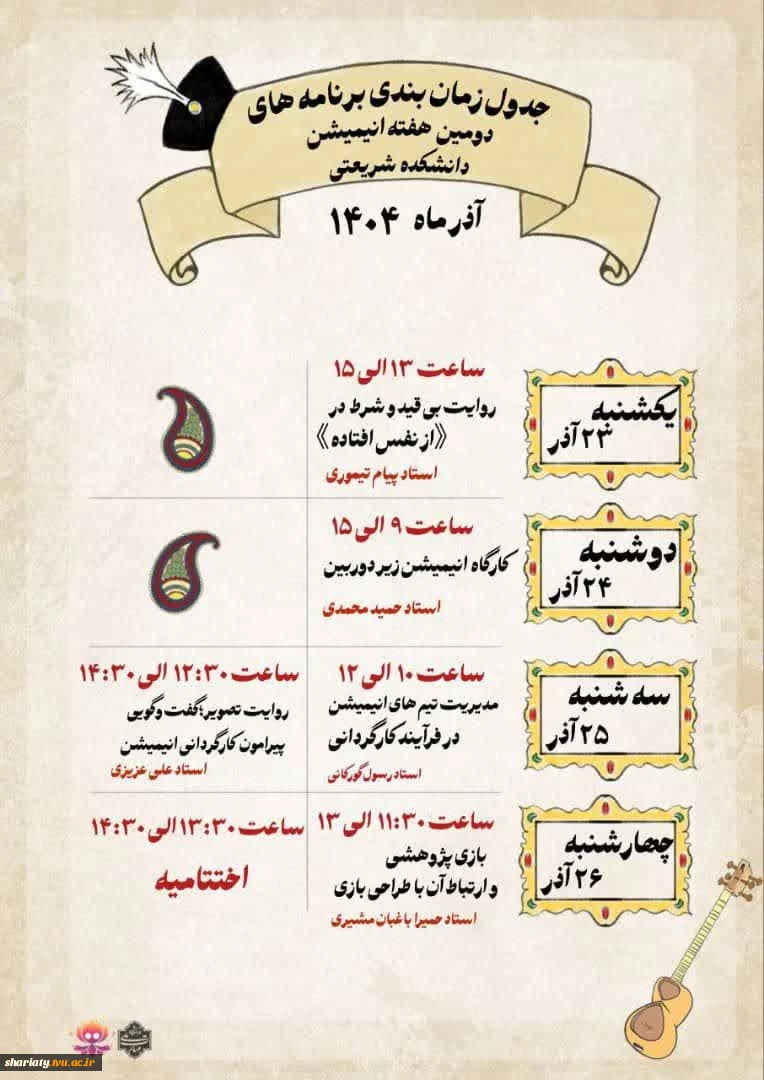 جدول زمان بندی برنامه های
دومین هفته انیمیشن
دانشکده شریعتی
آذرماه ۱۴۰۴
یکشنبه
۲۳ آذر
ساعت ۱۳ الی ۱۵
روایت بی قید و شرط در
《از نفس افتاده》
استاد پیام تیموری
دوشنبه
۲۴ آذر
ساعت ۹ الی ۱۵
کارگاه انیمیشن زیر دوربین
استاد حمید محمدی
سه شنبه
۲۵ آذر
ساعت ۱۰ الی ۱۲
مدیریت تیم های انیمیشن
در فرآیند کارگردانی
استاد رسول گورکانی
ساعت ۱۲:۳۰ الی ۱۴:۳۰
روایت تصویر؛گفت وگویی
پیرامون کارگردانی انیمیشن
استاد علی عزیزی
چهارشنبه
۲۶ آذر
ساعت ۱۱:۳۰ الی ۱۳
بازی پژوهشی
و ارتباط آن با طراحی بازی
استاد حمیرا باغبان مشیری
ساعت ۱۳:۳۰ الی ۱۴:۳۰
اختتامیه
shariaty.tvu.ac.ir